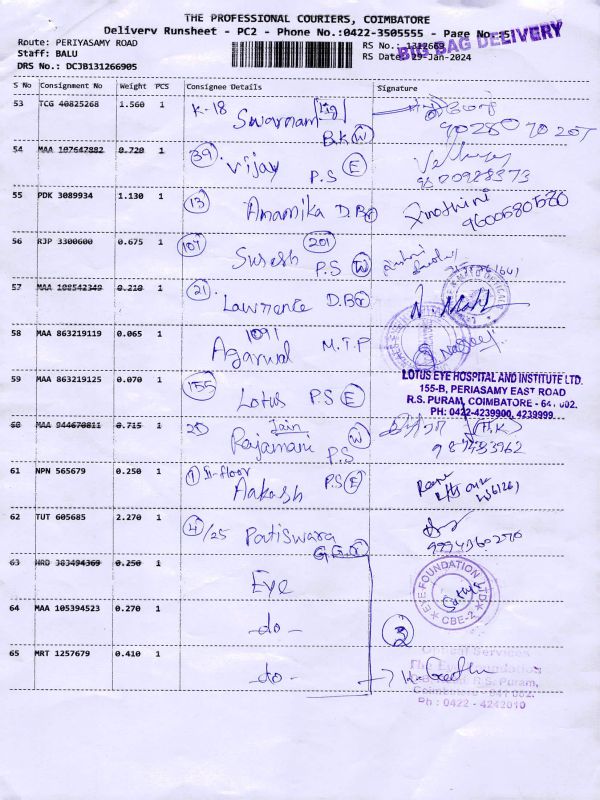 THE PROFESSIONAL COURIERS, COIMBATORE
Delivery Runsheet - PC2 - Phone No.:0422-3505555 - Page No.:5
BIG BAG DELIVERY
Route: PERIYASAMY ROAD
RS No.: 1312669
Staff: BALU
RS Date: 29-Jan-2024
DRS No.: DCJB131266905
S No Consignment No Weight PCS Consignee Details Signature
53 TCG 40825268 1.560 1 K-18 Swarnam
90280 70 207
54 MAA 107647882 0.720 1 39 Vijay P.S E
55 PDK 3089934 1.130 1 13 Anamika D.B
9600580580
56 RJP 3300600 0.675 1 107 Suresh 201 P.S W
57 MAA 108542349 0.210 1 21 Lawrence D.B
58 MAA 863219119 0.065 1 1091 Agarwal M.T.P
59 MAA 863219125 0.070 1 155 Lotus P.S E
LOTUS EYE HOSPITAL AND INSTITUTE LTD.
155-B, PERIASAMY EAST ROAD
R.S. PURAM, COIMBATORE - 641 002.
PH: 0422-4239900, 4239999.
60 MAA 944670811 0.715 1 20 Jain Rajamani P.S W
61 NPN 565679 0.250 1 II-floor Aakash P.S E
62 TUT 605685 2.270 1 4/25 Patiswara
9994360270
63 HRD 383494369 0.250 1 Eye
EYE FOUNDATION LTD
CBE-2
64 MAA 105394523 0.270 1 -do-
3
65 MRT 1257679 0.410 1 -do-
Clinical Services
The Eye Foundation
R.S. Puram,
Coimbatore - 641 002.
Ph : 0422 - 4242010